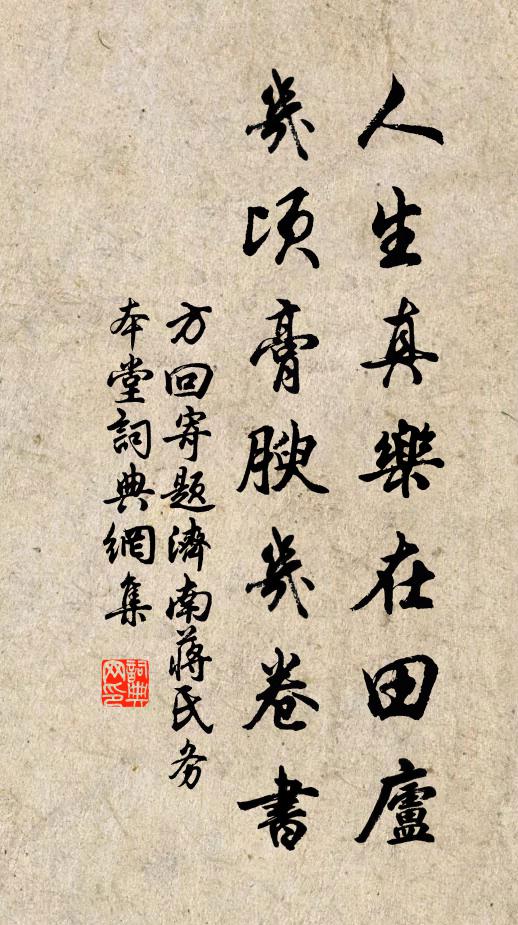 人生真樂在田廬
幾頃膏腴幾卷書
方回寄题濟南蔣氏务
本堂詞典網集
詞典网印